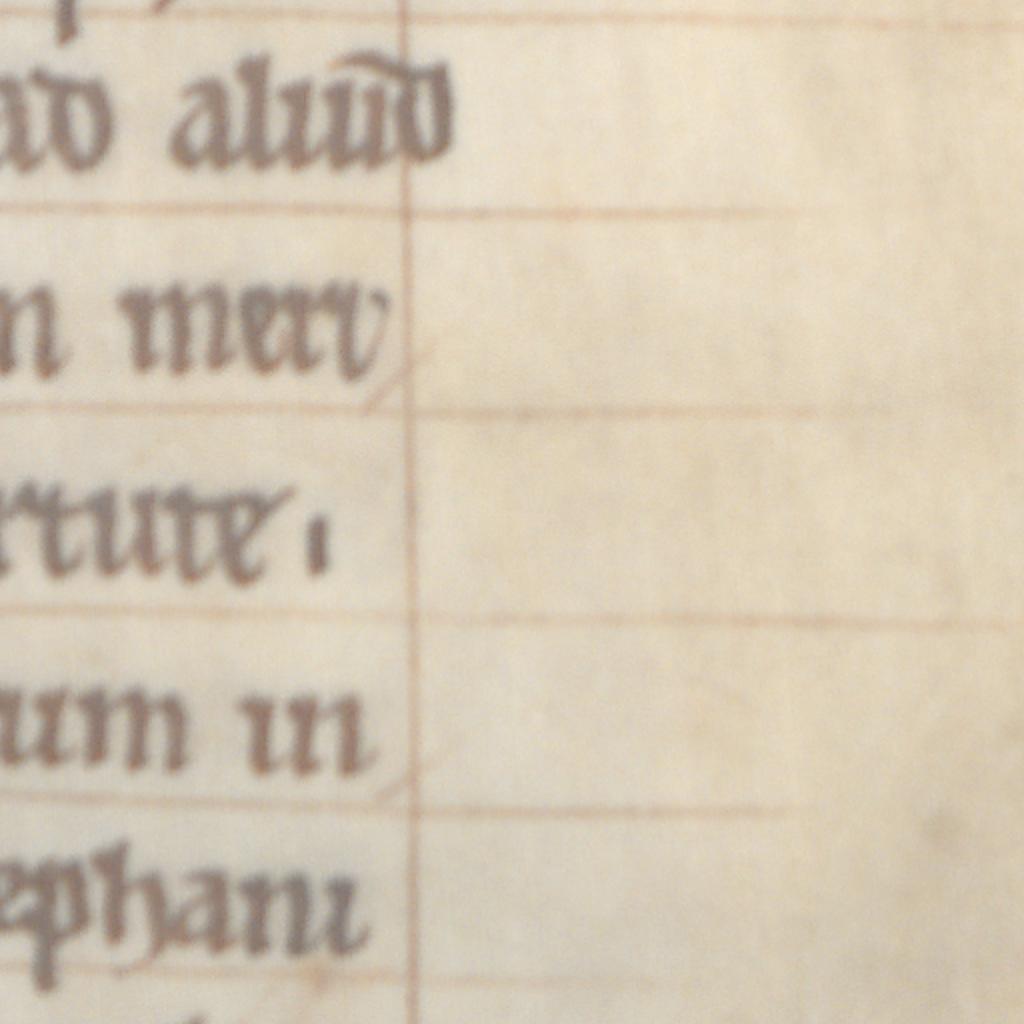 ad aliud
n meri
rtute
um in
ephani